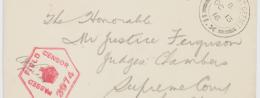 The Honorable
Mr Justice Ferguson
Judges Chambers
Supreme Court
FIELD CENSOR
PASSED
3974